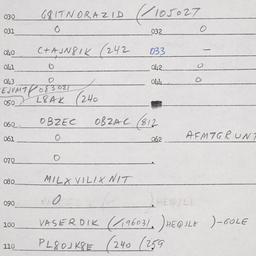 030 G8ITNORAZID (/105027
031 0 032 0
040 C+AJN8IK (242 033 –
041 0 042 0
043 0 044 0
EJVMT/083021
050 L8AK (240
060 OBZEC OBZAC (812
061 0 062 AFMTGRUNT
070 0
080 MILXVILIXNIT
090 0
100 VASERDIK (/19603/. )HEQILE )-GOLE
110 PL80JK8E (240 (259